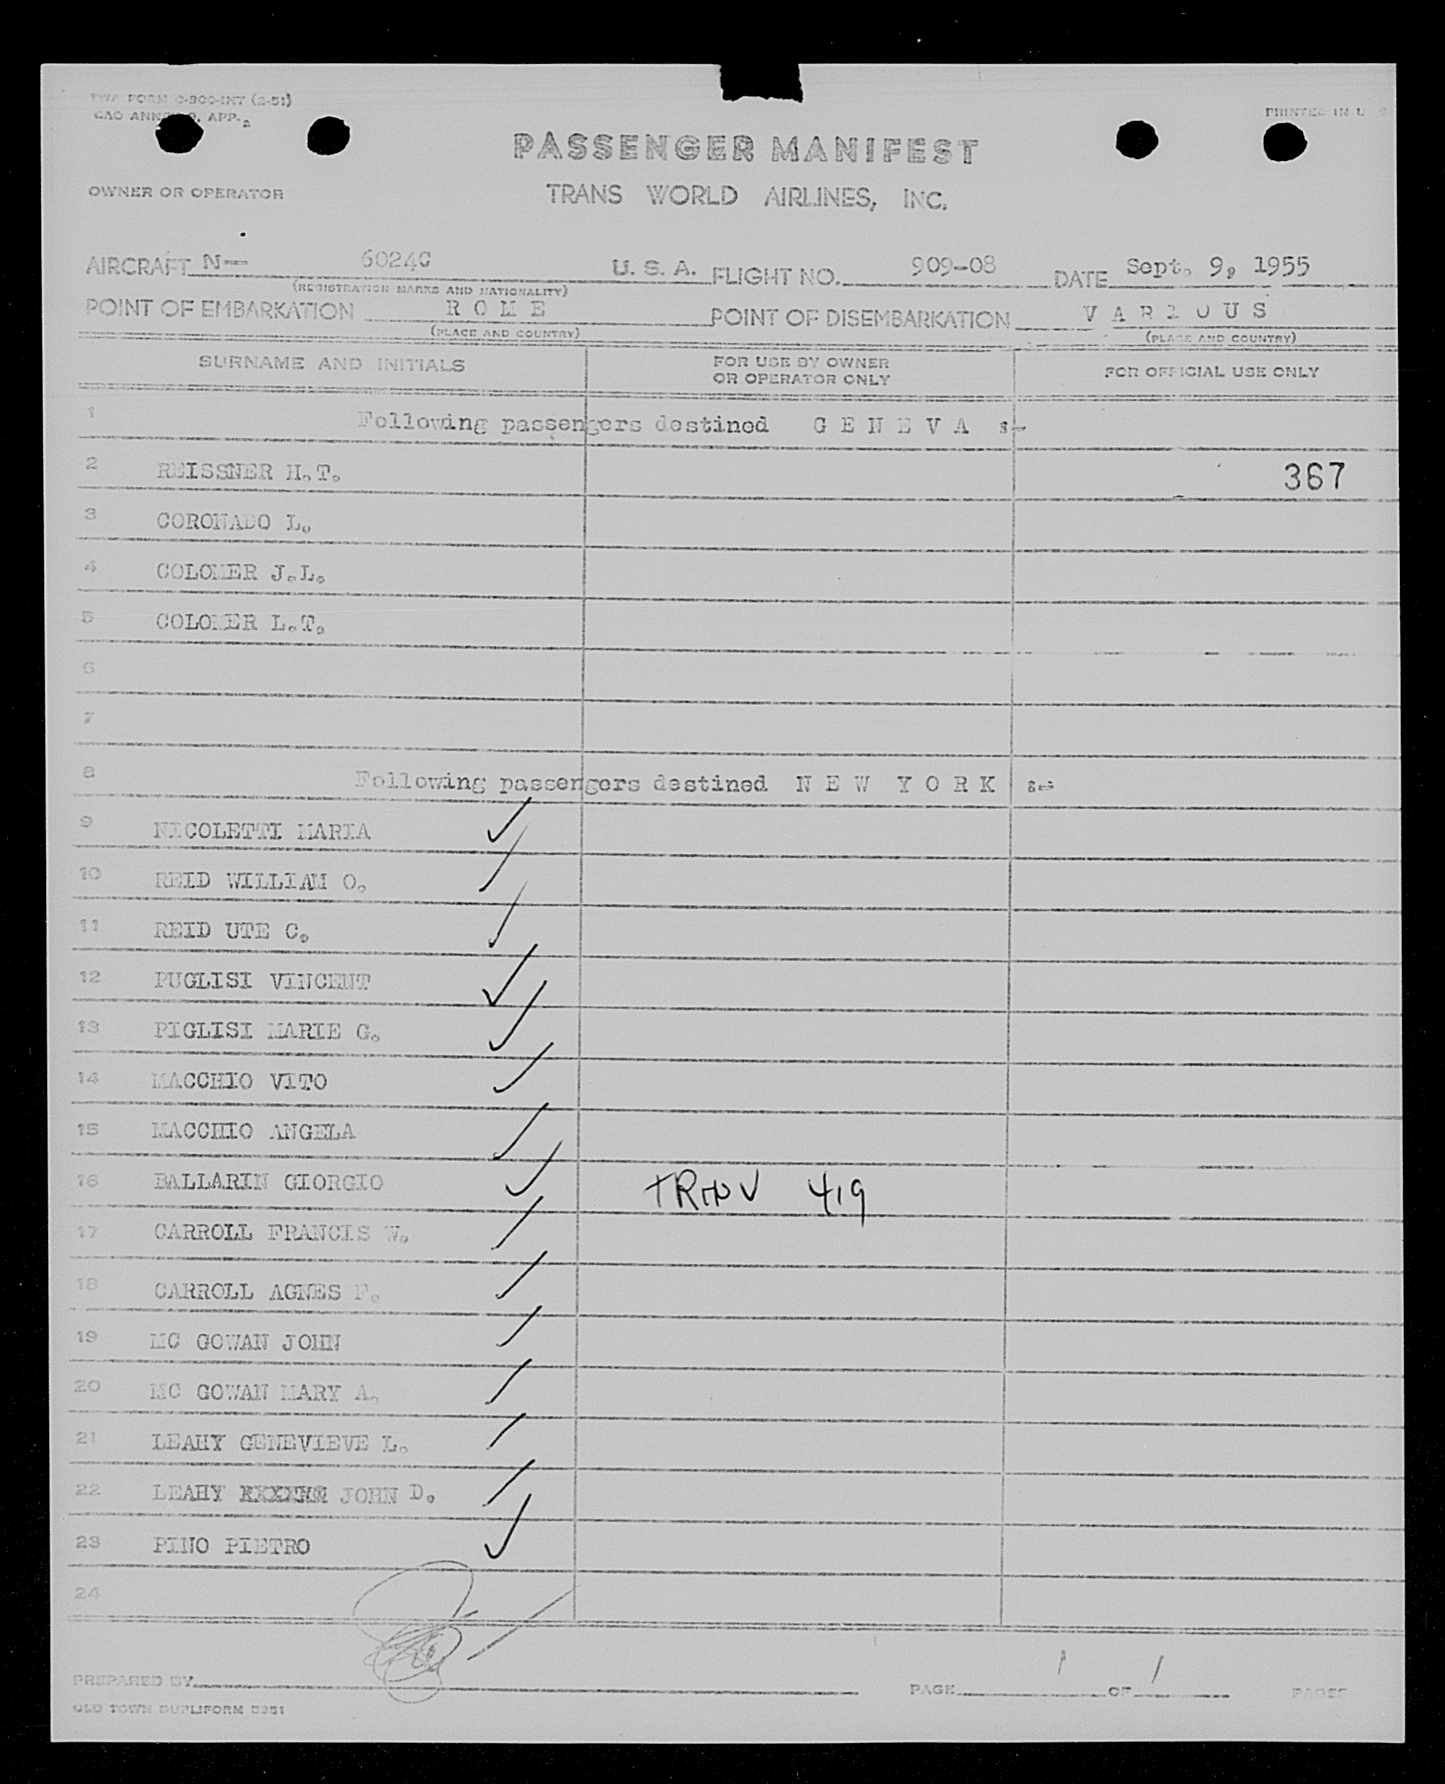 TWA FORM 0-300-INT (2-51)
PRINTED IN U
PASSENGER MANIFEST
OWNER OR OPERATOR
TRANS WORLD AIRLINES, INC.
AIRCRAFT N-- 6024C U. S. A. FLIGHT NO. 909-08 DATE Sept. 9, 1955
(REGISTRATION MARKS AND NATIONALITY)
POINT OF EMBARKATION R O M E POINT OF DISEMBARKATION V A R I O U S
(PLACE AND COUNTRY) (PLACE AND COUNTRY)
SURNAME AND INITIALS FOR USE BY OWNER OR OPERATOR ONLY FOR OFFICIAL USE ONLY
1 Following passengers destined G E N E V A :-
2 REISSNER H.T. 367
3 CORONADO L.
4 COLOMER J.L.
5 COLOMER L.T.
6
7
8 Following passengers destined N E W Y O R K :-
9 NICOLETTI MARIA ✓
10 REID WILLIAM O. /
11 REID UTE C. /
12 PUGLISI VINCENT ✓
13 PIGLISI MARIE G. ✓
14 MACCHIO VITO ✓
15 MACCHIO ANGELA ✓
16 BALLARIN GIORGIO ✓ 419
17 CARROLL FRANCIS W. /
18 CARROLL AGNES F. /
19 MC GOWAN JOHN /
20 MC GOWAN MARY A. /
21 LEAHY GENEVIEVE L. /
22 LEAHY JOHN D. /
23 PINO PIETRO ✓
24
PREPARED BY
PAGE 1 OF 1 PAGES
OLD TOWN DUPLIFORM 5351